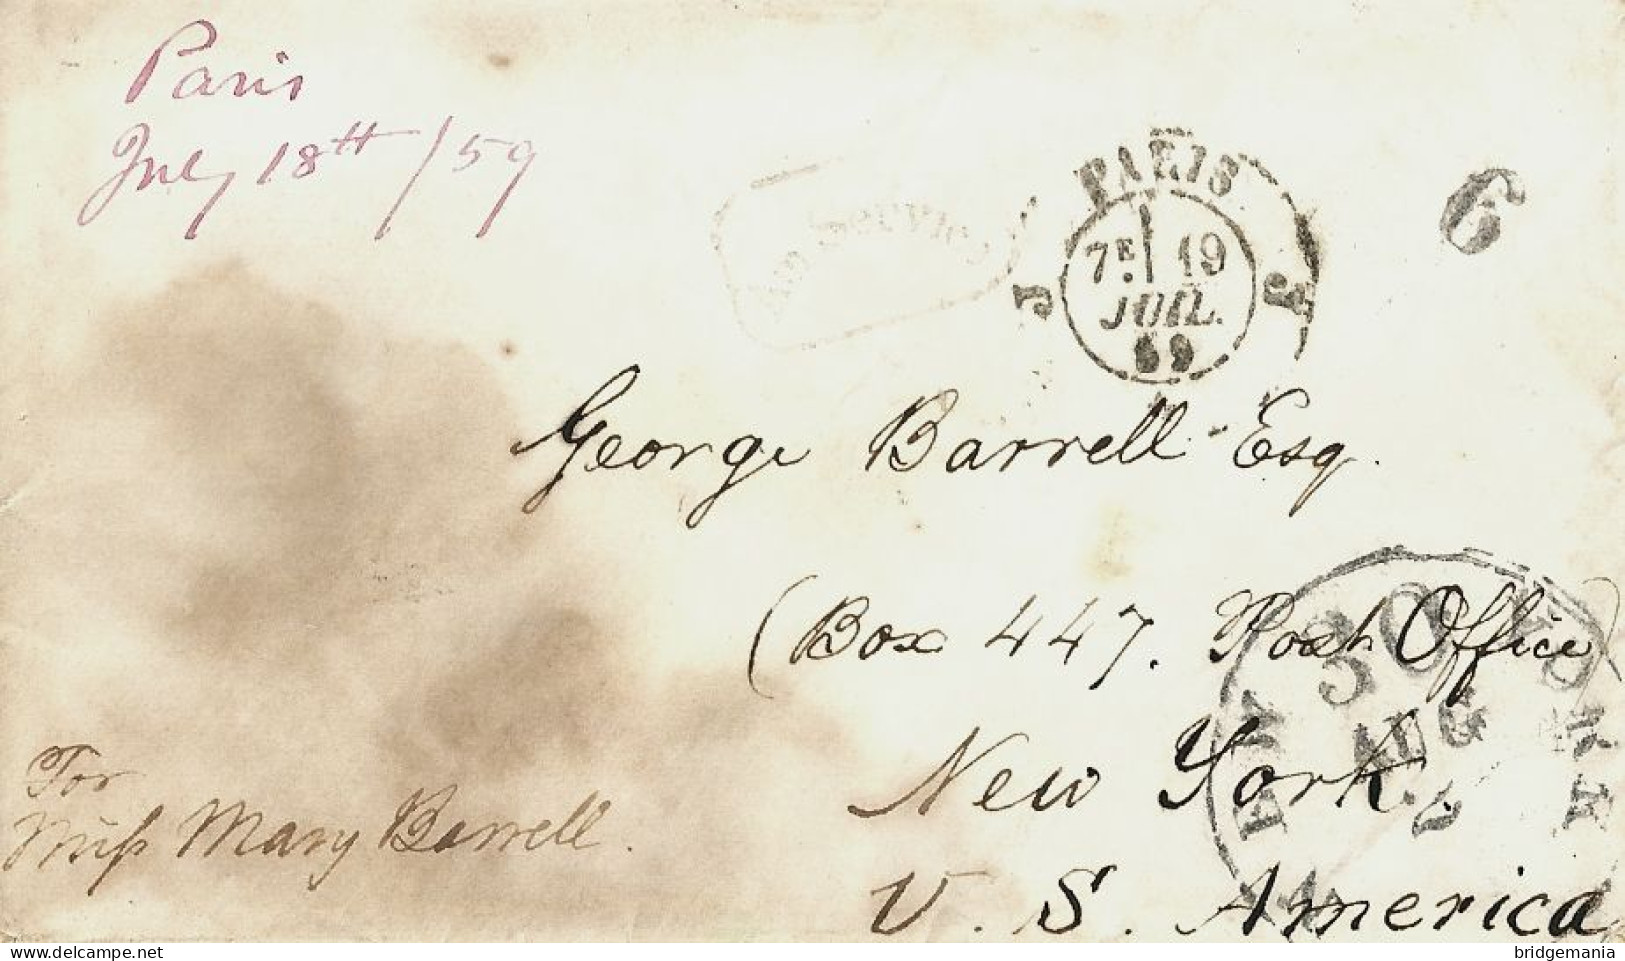 Paris
July 18tt /59
PARIS
7E 19
JUIL.
59
J J
6
George Barrell Esq.
(Box 447. Post Office)
New York.
U. S. America
NEW YORK
30
AUG
For
Miſs Mary Barrell.
bridgemania